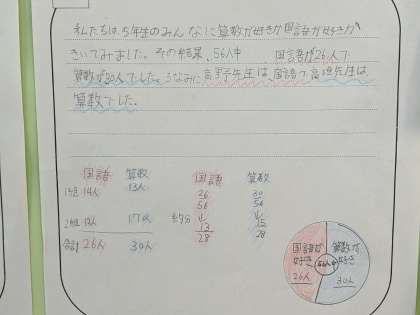 私たちは、5年生のみんなに算数が好きか国語が好きか
きいてみました。その結果、56人中 国語が26人で
算数が30人でした。ちなみに高野先生は、国語で高垣先生は、
算数でした。
国語 算数 国語 算数
1組 14人 13人 26 30
56 56
2組 12人 17人 約分 ↓ ↓
13 15
合計 26人 30人 28 28
国語が好き 26人
56人
算数が好き 30人